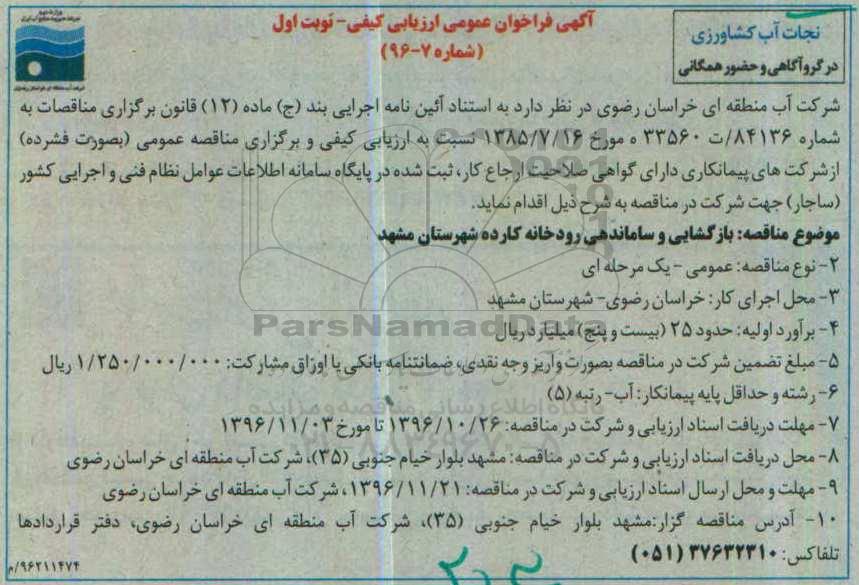 آگهی فراخوان عمومی ارزیابی کیفی- نوبت اول
(شماره ۷-۹۶)
نجات آب کشاورزی
در گرو آگاهی و حضور همگانی
شرکت آب منطقه ای خراسان رضوی در نظر دارد به استناد آئین نامه اجرایی بند (ج) ماده (۱۲) قانون برگزاری مناقصات به
شماره ۸۴۱۳۶/ت ۳۳۵۶۰ ه مورخ ۱۳۸۵/۷/۱۶ نسبت به ارزیابی کیفی و برگزاری مناقصه عمومی (بصورت فشرده)
از شرکت های پیمانکاری دارای گواهی صلاحیت ارجاع کار، ثبت شده در پایگاه سامانه اطلاعات عوامل نظام فنی و اجرایی کشور
(ساجار) جهت شرکت در مناقصه به شرح ذیل اقدام نماید.
موضوع مناقصه: بازگشایی و ساماندهی رودخانه کارده شهرستان مشهد
۲- نوع مناقصه: عمومی - یک مرحله ای
۳- محل اجرای کار: خراسان رضوی- شهرستان مشهد
ParsNamadData
۴- برآورد اولیه: حدود ۲۵ (بیست و پنج) میلیارد ریال
۵- مبلغ تضمین شرکت در مناقصه بصورت واریز وجه نقدی، ضمانتنامه بانکی یا اوراق مشارکت: ۱/۲۵۰/۰۰۰/۰۰۰ ریال
۶- رشته و حداقل پایه پیمانکار: آب- رتبه (۵)
۷- مهلت دریافت اسناد ارزیابی و شرکت در مناقصه: ۱۳۹۶/۱۰/۲۶ تا مورخ ۱۳۹۶/۱۱/۰۳
۸- محل دریافت اسناد ارزیابی و شرکت در مناقصه: مشهد بلوار خیام جنوبی (۳۵)، شرکت آب منطقه ای خراسان رضوی
۹- مهلت و محل ارسال اسناد ارزیابی و شرکت در مناقصه: ۱۳۹۶/۱۱/۲۱، شرکت آب منطقه ای خراسان رضوی
۱۰- آدرس مناقصه گزار:مشهد بلوار خیام جنوبی (۳۵)، شرکت آب منطقه ای خراسان رضوی، دفتر قراردادها
تلفاکس: ۳۷۶۳۲۳۱۰ (۰۵۱)
۹۶۲۱۱۴۷۴/م